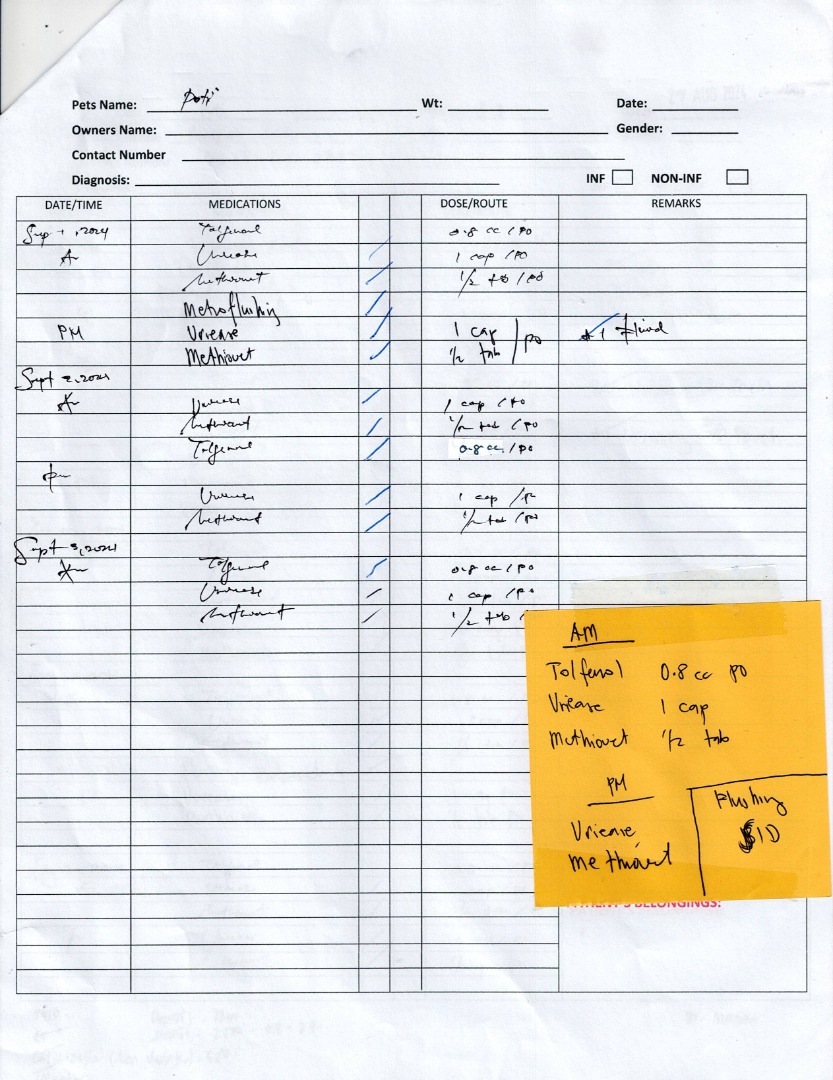 Pets Name: Poti Wt: Date:
Owners Name: Gender:
Contact Number
Diagnosis: INF NON-INF
DATE/TIME MEDICATIONS DOSE/ROUTE REMARKS
Sep 1, 2024 Tolfenol 0.8 cc / PO
A Uriease 1 cap / PO
Methiovet 1/2 tab / PO
Metroflushing
PM Uriease 1 cap / PO Fluid
Methiovet 1/2 tab
Sept 2, 2024
Am Uriease 1 cap / PO
Methiovet 1/2 tab / PO
Tolfenol 0.8 cc / PO
pm
Uriease 1 cap / PO
Methiovet 1/2 tab / PO
Sept 3, 2024
Am Tolfenol 0.8 cc / PO
Uriease 1 cap / PO
Methiovet 1/2 tab
AM
Tolfenol 0.8 cc PO
Uriease 1 cap
Methiovet 1/2 tab
PM
Uriease
Methiovet
Flushing
BID
BELONGINGS: